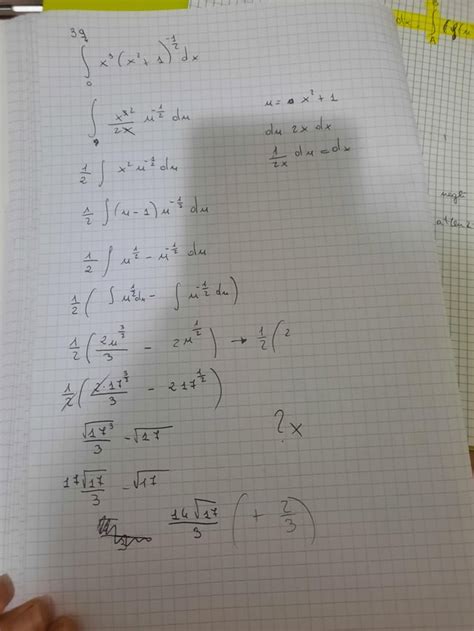 39
∫₀ x³(x²+1)^(-1/2) dx
∫ x^3 2/2x u^(-1/2) du
u = x²+1
du 2x dx
1/2x du = dx
1/2 ∫ x² u^(-1/2) du
1/2 ∫ (u-1) u^(-1/2) du
1/2 ∫ u^(1/2) - u^(-1/2) du
1/2 ( ∫ u^(1/2) du - ∫ u^(-1/2) du )
1/2 ( 2u^(3/2)/3 - 2u^(1/2) ) → 1/2 ( 2
1/2 ( 2·17^(3/2)/3 - 2 17^(1/2) )
√17³/3 - √17
?x
17√17/3 - √17
14√17/3 ( + 2/3 )
dx
negli